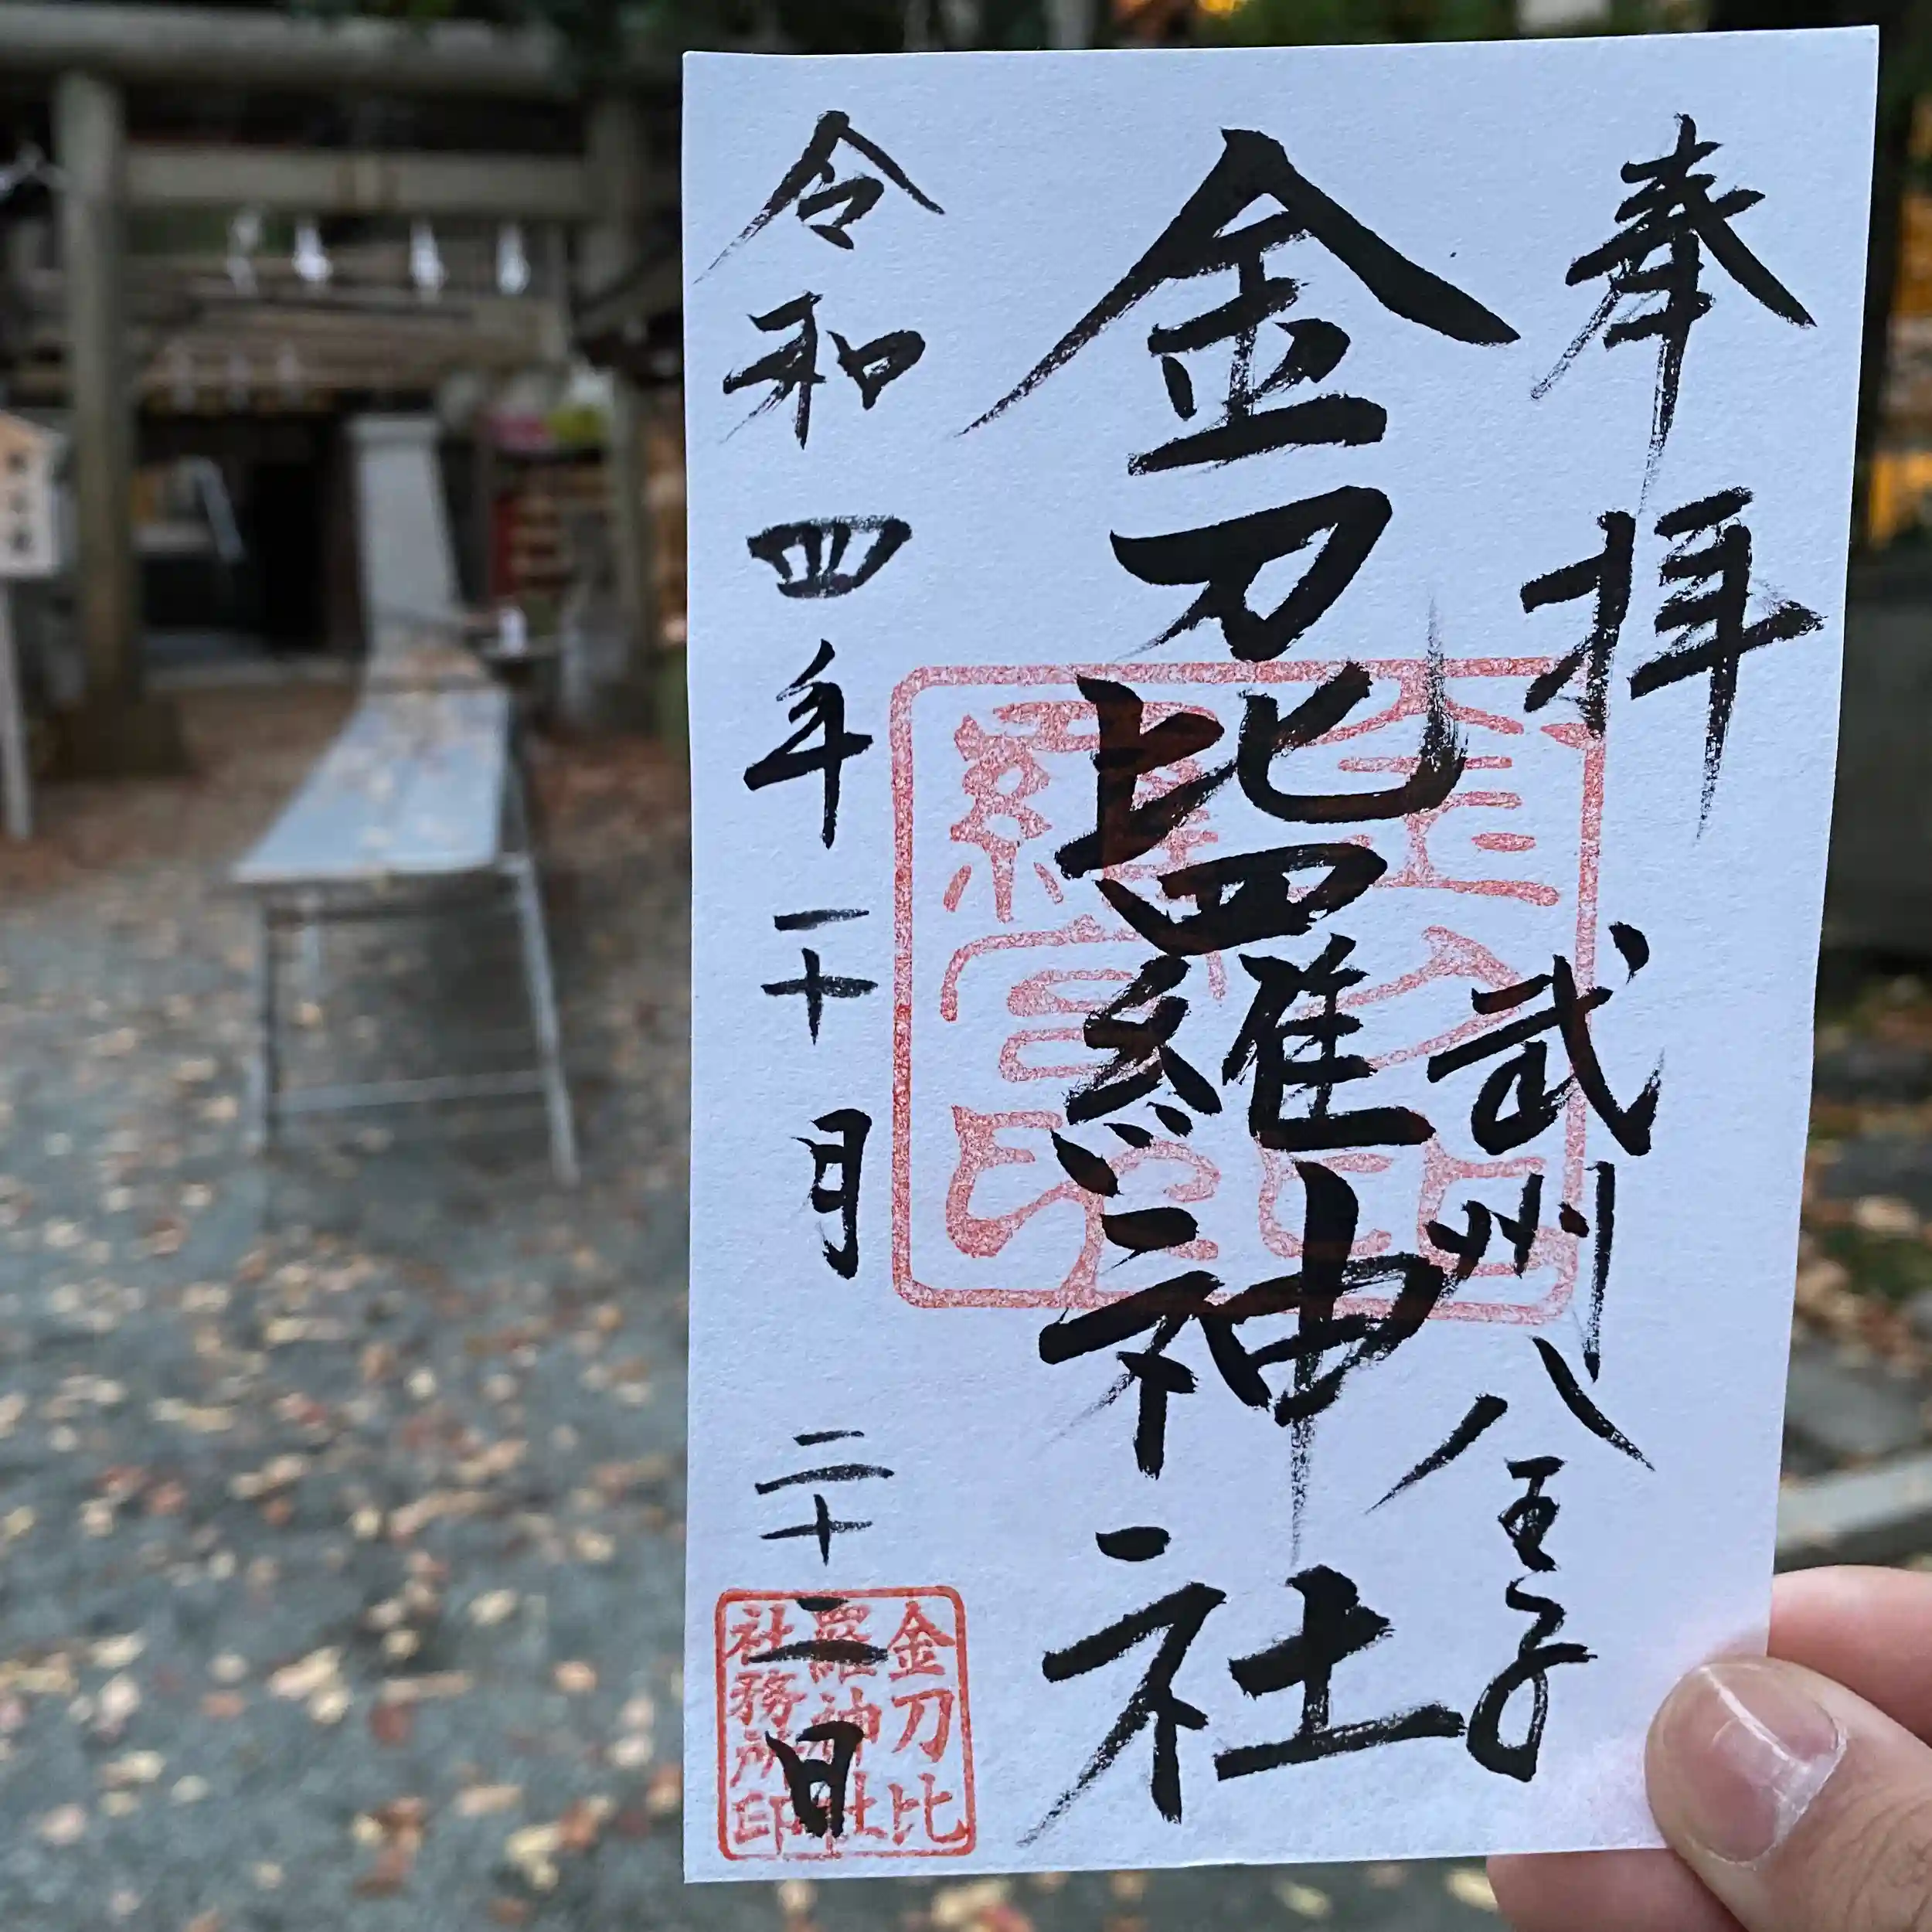 奉拝
武州八王子
金刀比羅神社
令和四年一十月二十二日
金刀比
羅宮印
金刀比
羅神社
社務所印